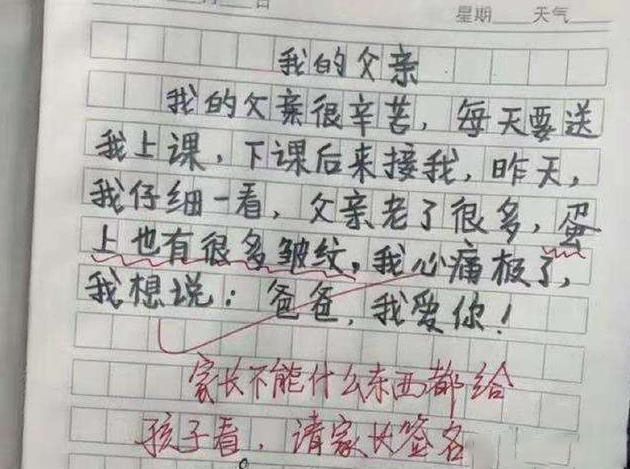 日
星期 天气
我的父亲
我的父亲很辛苦，每天要送
我上课，下课后来接我，昨天，
我仔细一看，父亲老了很多，蛋
上也有很多皱纹，我心痛极了，
我想说：爸爸，我爱你！
家长不能什么东西都给
孩子看，请家长签名